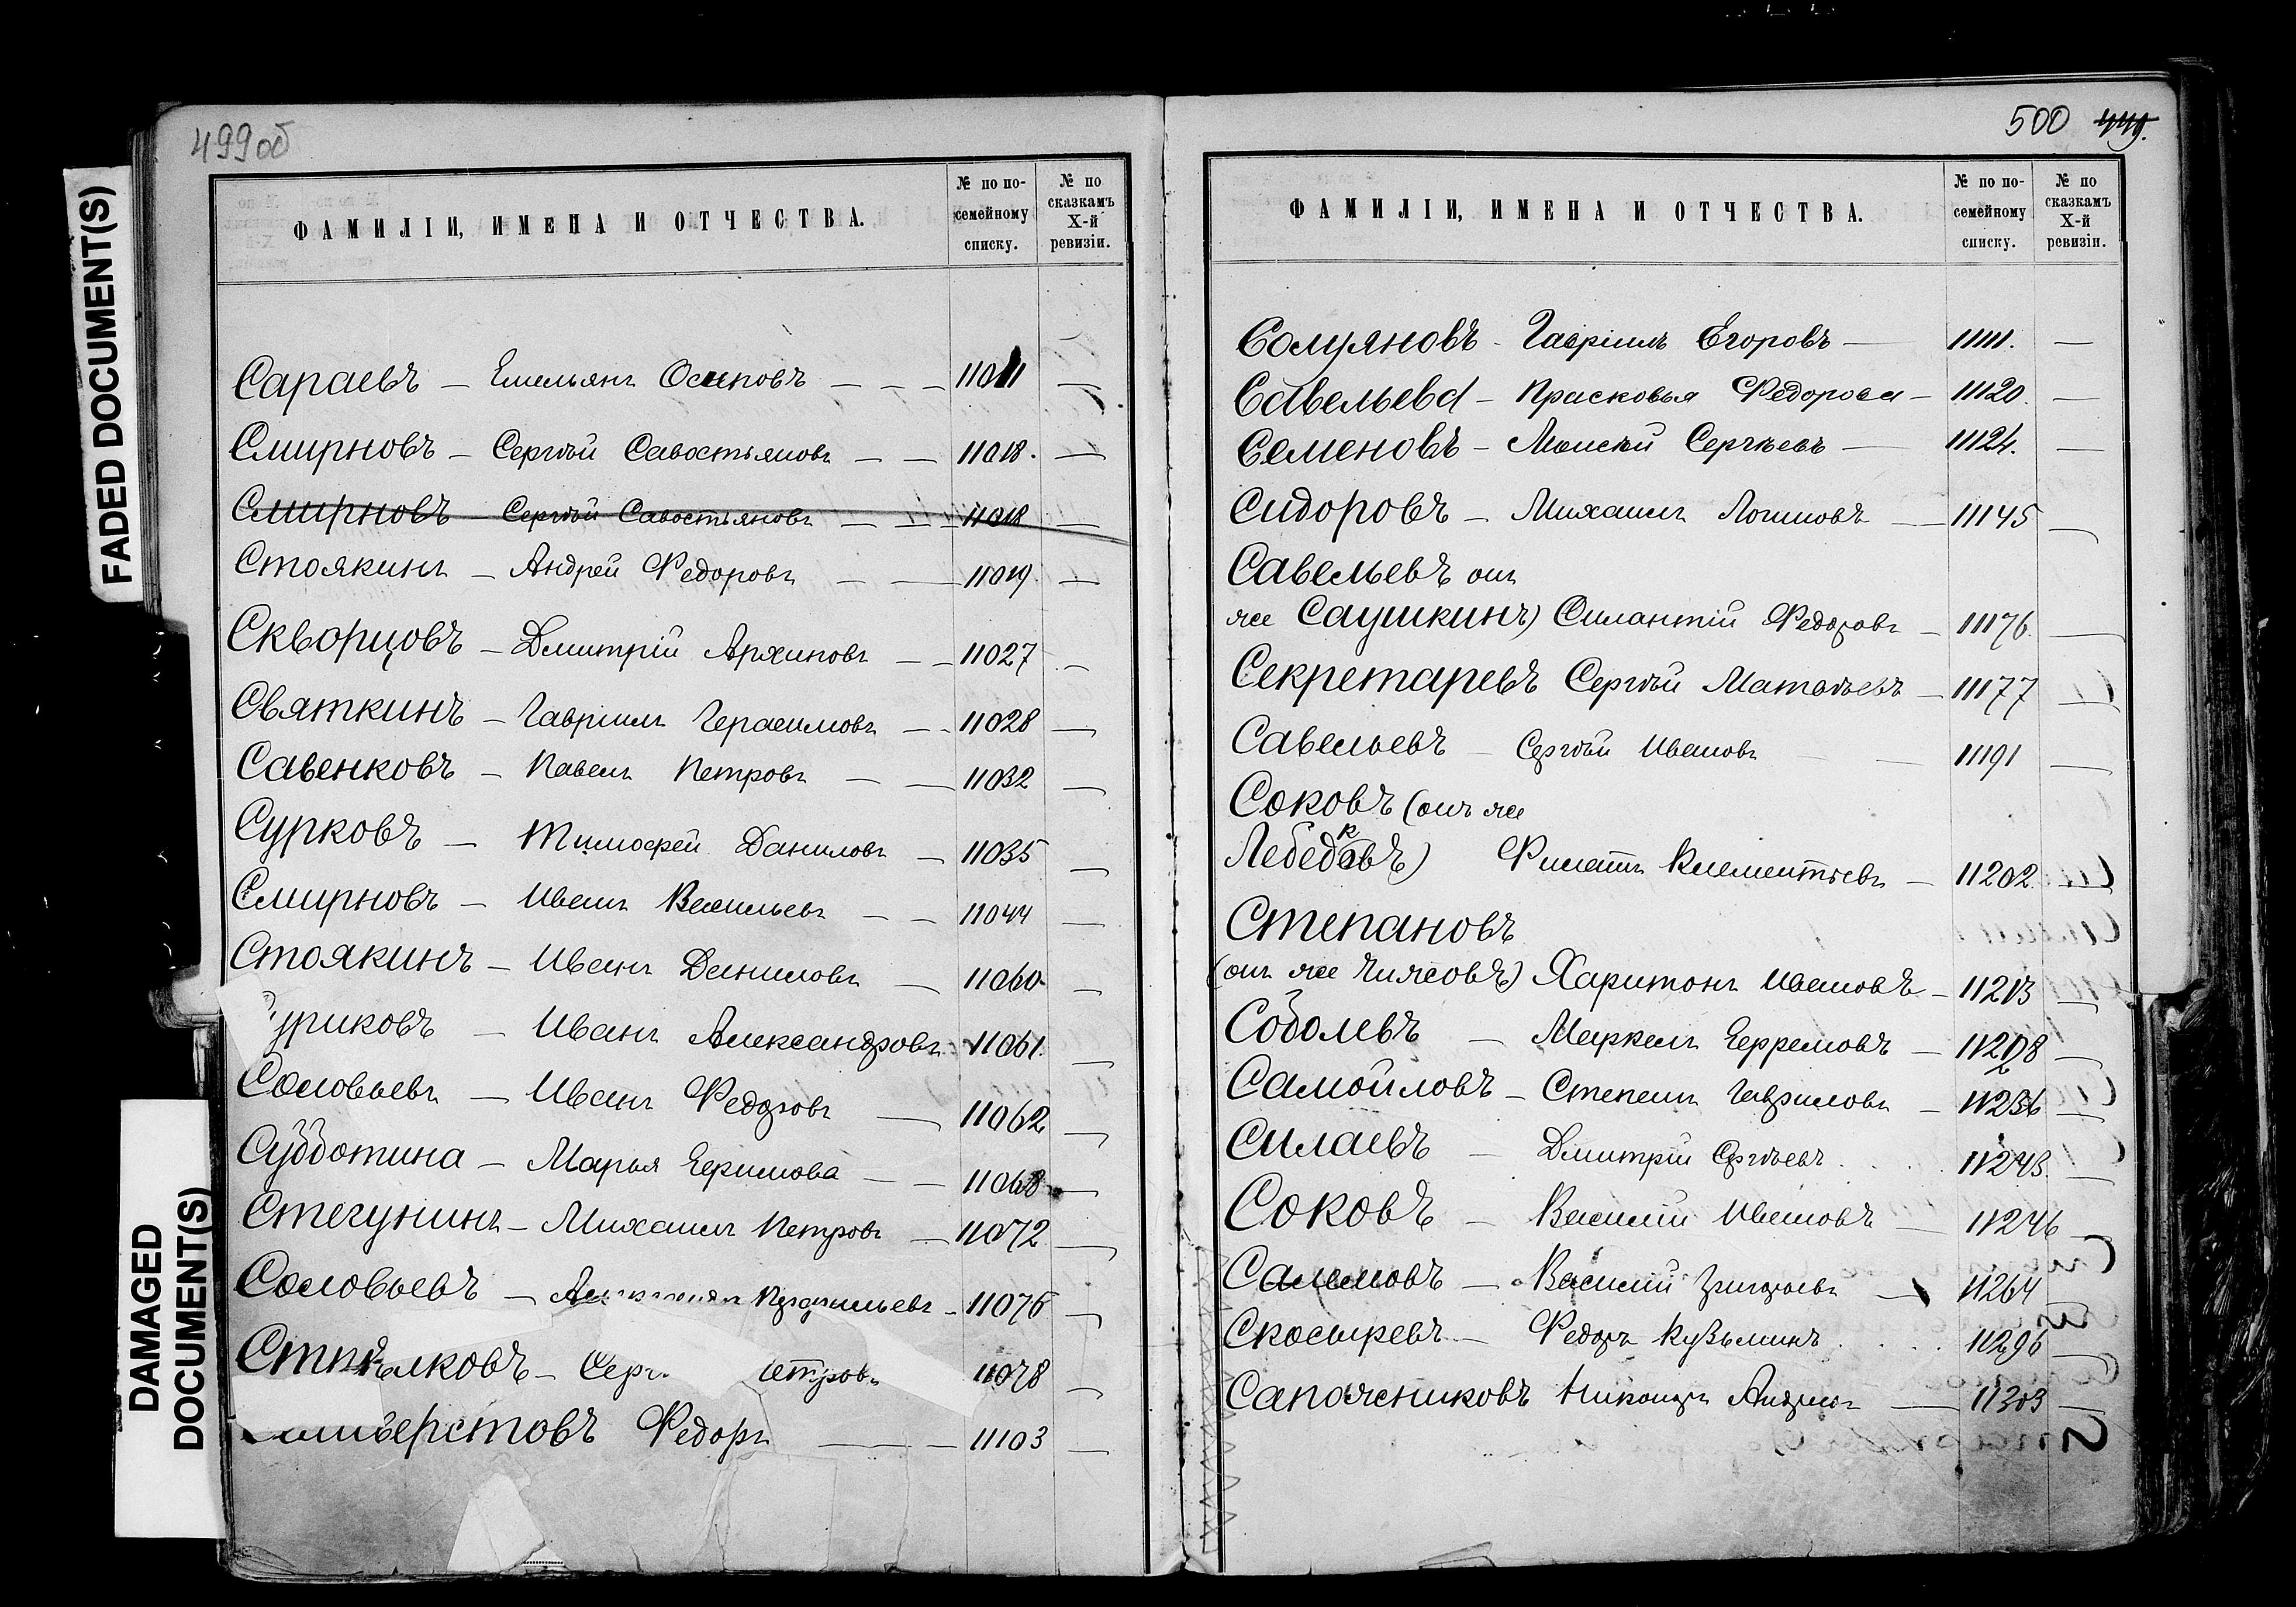 499 об
ФАМИЛІИ, ИМЕНА И ОТЧЕСТВА. № по по-семейному списку. № по сказкамъ X-й ревизіи.
Сараевъ — Емельянъ Осиповъ — — — 11011 —
Смирновъ — Сергѣй Савостьяновъ — — 11018. —
Смирновъ — Сергѣй Савостьяновъ — — 11018 —
Стоякинъ — Андрей Федоровъ — — 11019. —
Скворцовъ — Дмитрій Архиповъ — — 11027 —
Святкинъ — Гавріилъ Герасимовъ — — 11028 —
Савенковъ — Павелъ Петровъ — — 11032 —
Сурковъ — Тимофей Даниловъ — 11035 —
Смирновъ — Иванъ Васильевъ — — 11044 —
Стоякинъ — Иванъ Даниловъ — 11060. —
уриковъ — Иванъ Александровъ 11061. —
Соловьевъ — Иванъ Федоровъ — 11062 —
Субботина — Марья Ефимова — — 11068 —
Стегунинъ — Михаилъ Петровъ — 11072 —
Соловьевъ — — 11076 —
Серг етровъ 11078 —
иверстовъ Федоръ — 11103 —
500 449.
ФАМИЛІИ, ИМЕНА И ОТЧЕСТВА. № по по-семейному списку. № по сказкамъ X-й ревизіи.
Солуяновъ - Гавріилъ Егоровъ — 11111. —
Савельева — Прасковья Федорова — 11120. —
Семеновъ — Моисей Сергѣевъ — 11124. —
Сидоровъ — Михаилъ Логиновъ — 11145 —
Савельевъ онъ
же Саушкинъ) Силантій Федоровъ — 11176. —
Секретаревъ Сергѣй Матвѣевъ — 11177 —
Савельевъ — Сергѣй Ивановъ — 11191 —
Соковъ (онъ же
Лебедковъ) Филатъ Клементьевъ — 11202. —
Степановъ
(онъ же Чижовъ) Харитонъ Ивановъ — 11213 —
Соболевъ — Маркелъ Ефремовъ — 11228 —
Самойловъ — Степанъ Гавриловъ — 11236 —
Силаевъ — Дмитрій Сергѣевъ 11243. —
Соковъ — Василій Ивановъ — 11246 —
Василій Григорьевъ — 11264
Скосыревъ — Федоръ Кузьминъ 11296 —
Сапожниковъ Никаноръ — 11303 —
FADED DOCUMENT(S)
DAMAGED DOCUMENT(S)